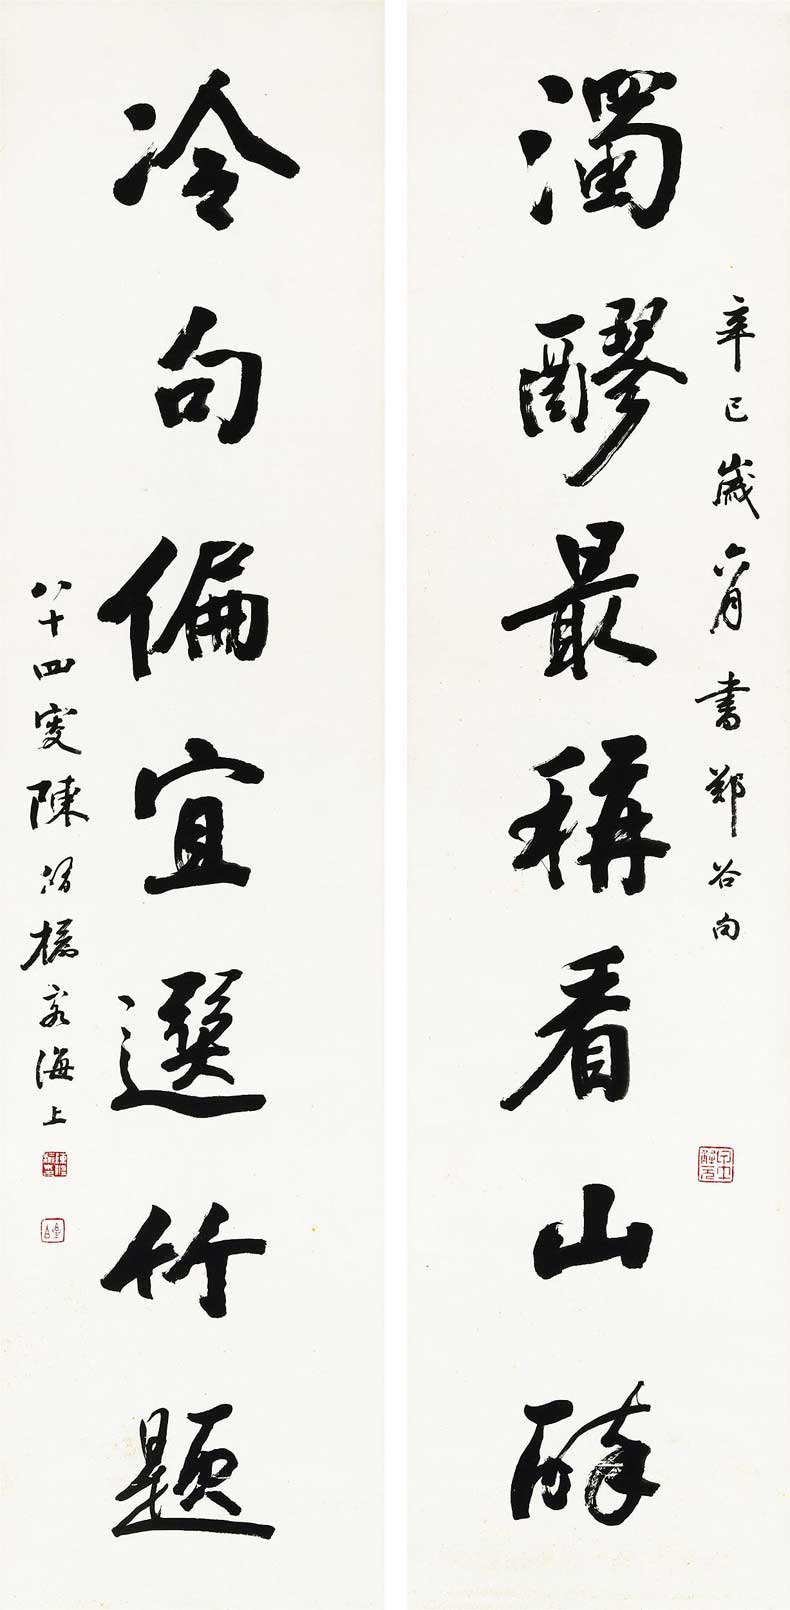 濁醪最稱看山醉
辛巳歲六月書鄭谷句
冷句偏宜選竹題
八十四叟陳 海上